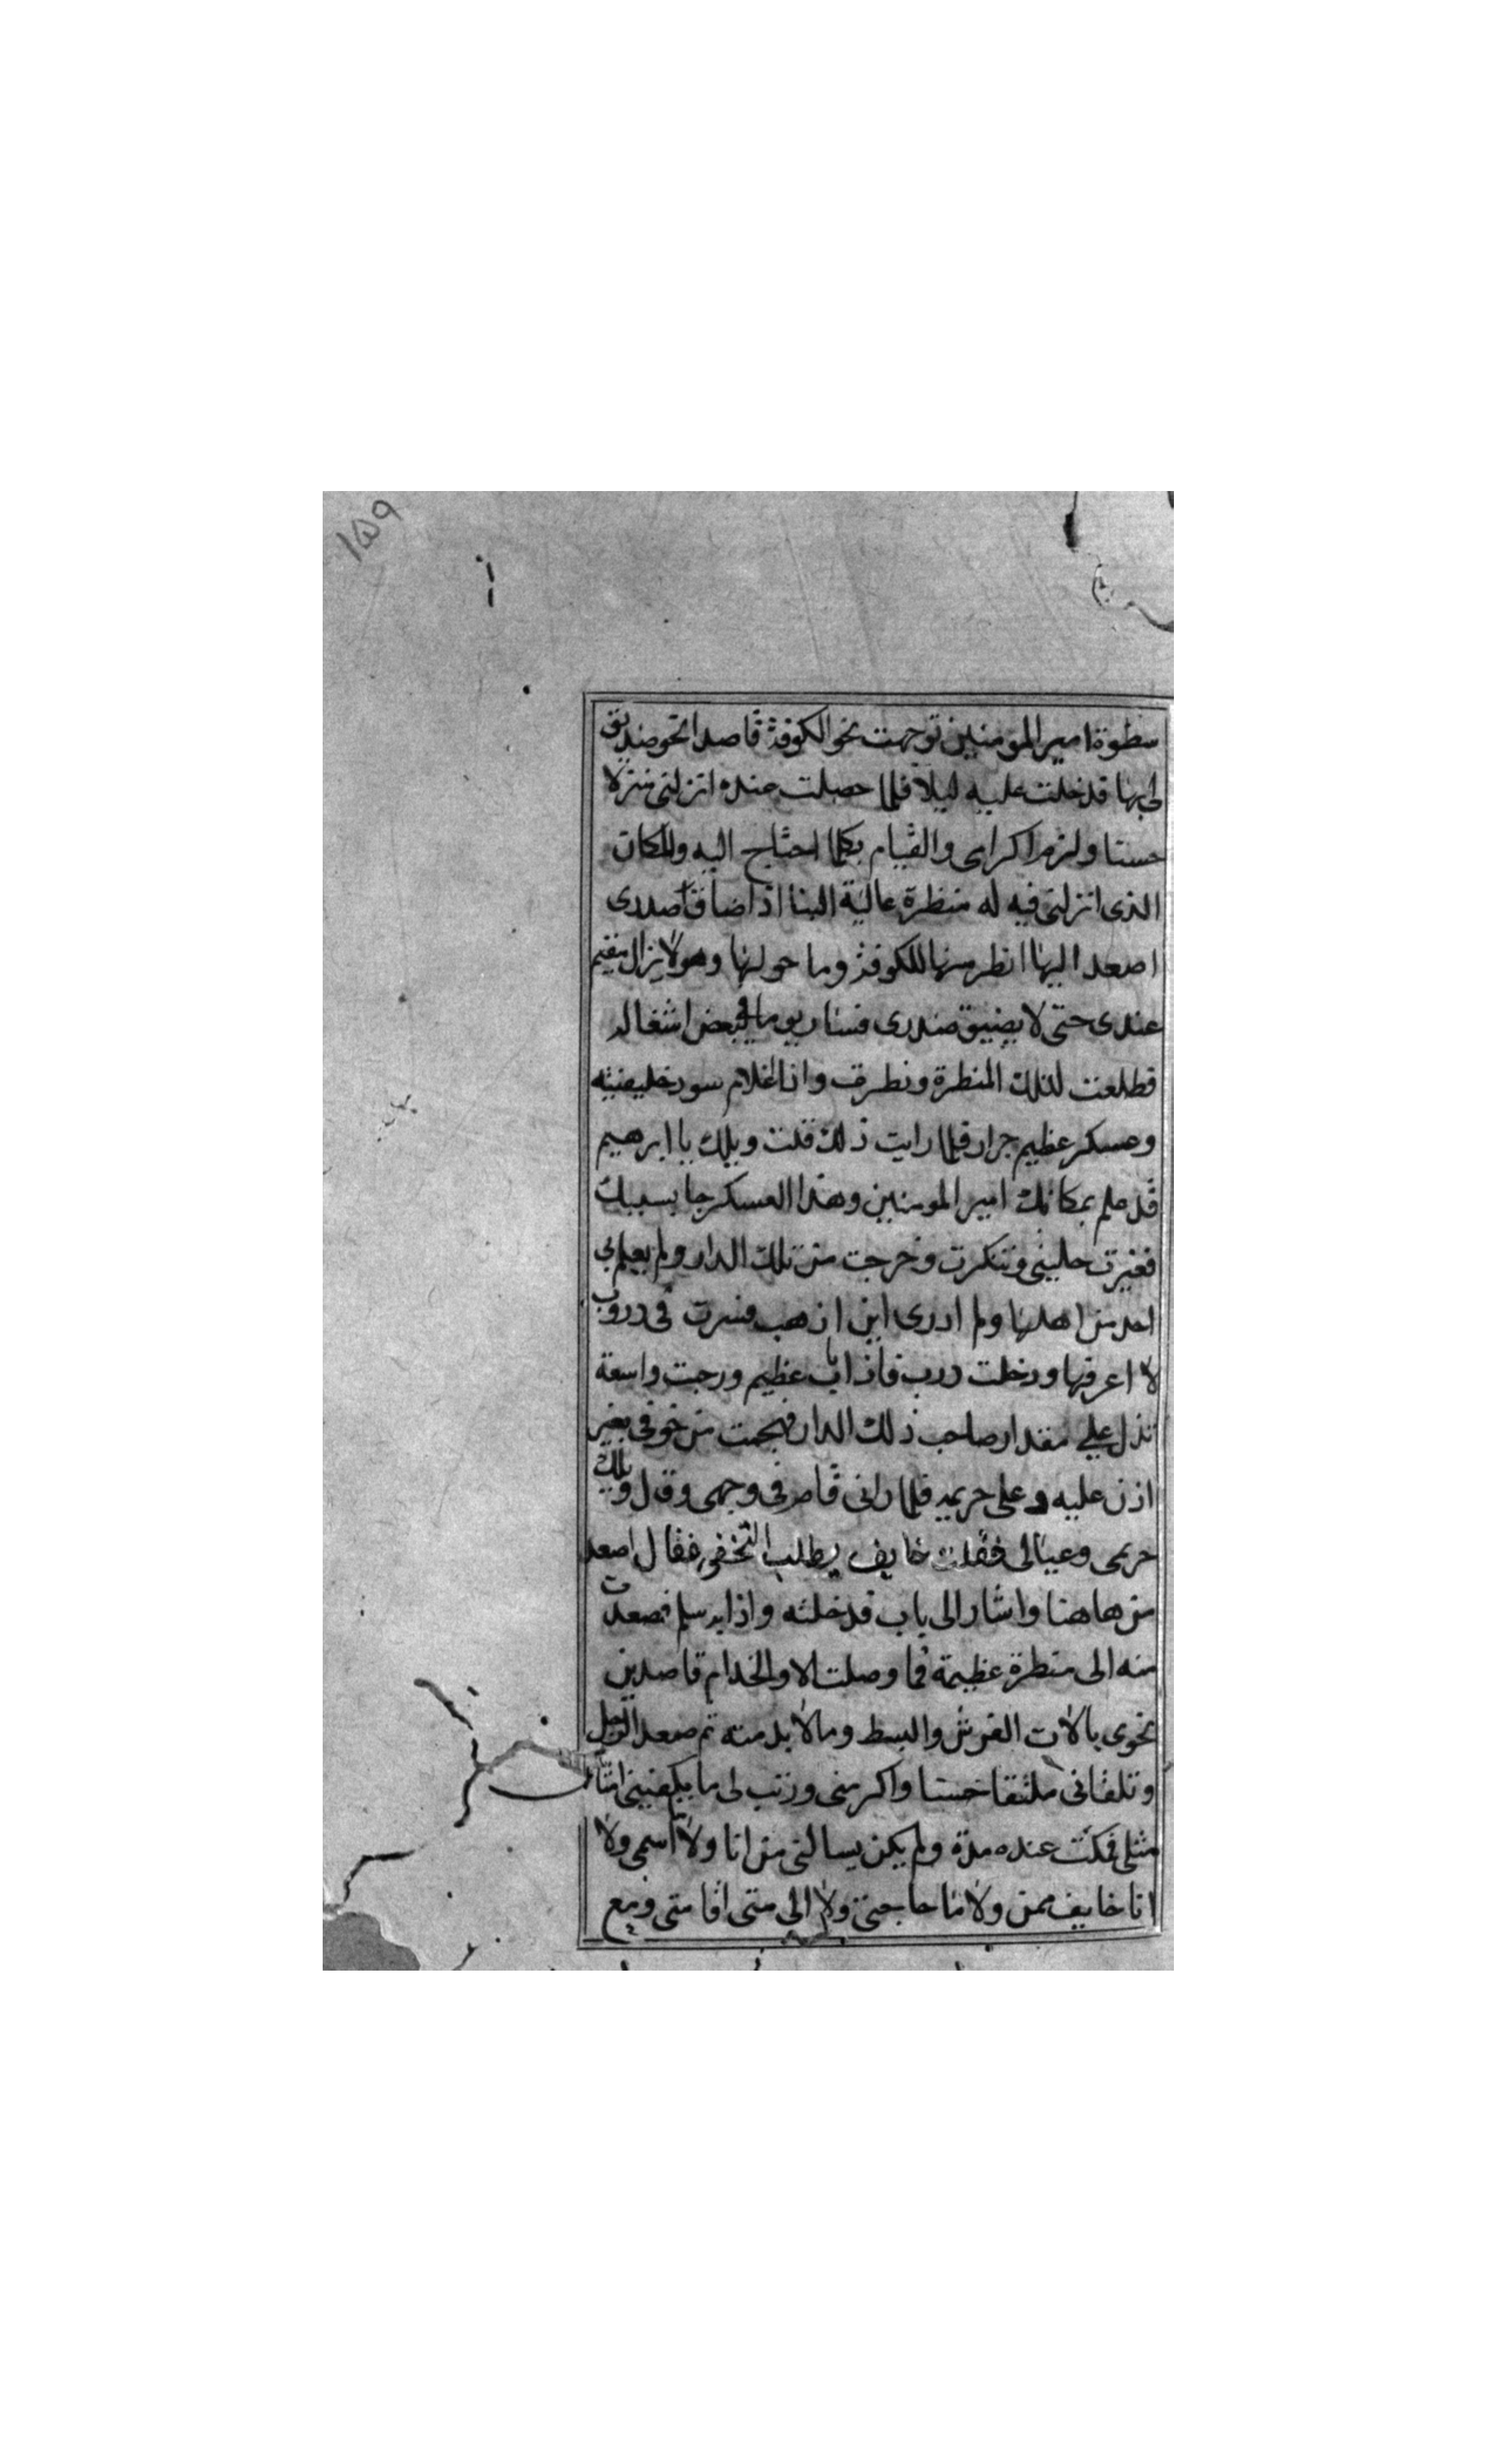 ١٥٩
سطوة امير المومنين توجهت نحو الكوفة قاصدا نحو صديق
لى بها فدخلت عليه ليلا فلما حصلت عنده انزلنى منزلا
حسنا ولزم اكرامى والقيام بكلما احتاج اليه والمكان
الذى انزلنى فيه له منظرة عالية البنا اذا ضاق صدرى
اصعد اليها انظر منها للكوفة وما حولها وهو لا يزال مقيم
عندى حتى لا يضيق صدرى فسار يوما فى بعض اشغاله
فطلعت لذلك المنظرة ونظرت وانا اعلام سود خليفتيه
وعسكر عظيم جرار فلما رايت ذلك قلت ويلك يا ابرهيم
قد علم بمكانك امير المومنين وهذا العسكر جا بسببك
فغيرت حليتى وتنكرت وخرجت من تلك الدار ولم يعلم بى
احد من اهلها ولم ادرى اين اذهب فسرت فى دروب
لا اعرفها ودخلت درب فاذا باب عظيم ورحبت واسعة
تدل على مقدار صاحب ذلك الدار فهجمت من خوفى بغير
اذن عليه وعلى حريمه فلما رانى قام فى وجهى وقال ويلك
حريمى وعيالى فقلت خايف يطلب التخفى فقال اصعد
من هاهنا واشار الى باب فدخلته واذا به سلم فصعدت
منه الى منظرة عظيمة فما وصلت الا والخدام قاصدين
نحوى بالات الفرش والبسط ومالا بد منه ثم صعد الرجل
وتلقانى ملتقا حسنا واكرمنى ورتب لى ما يكفينى
مثلى فمكثت عنده مدة ولم يكن يسالنى من انا ولا اسمى ولا
انا خايف ممن ولا ما حاجتى ولا الى متى اقامتى ومع